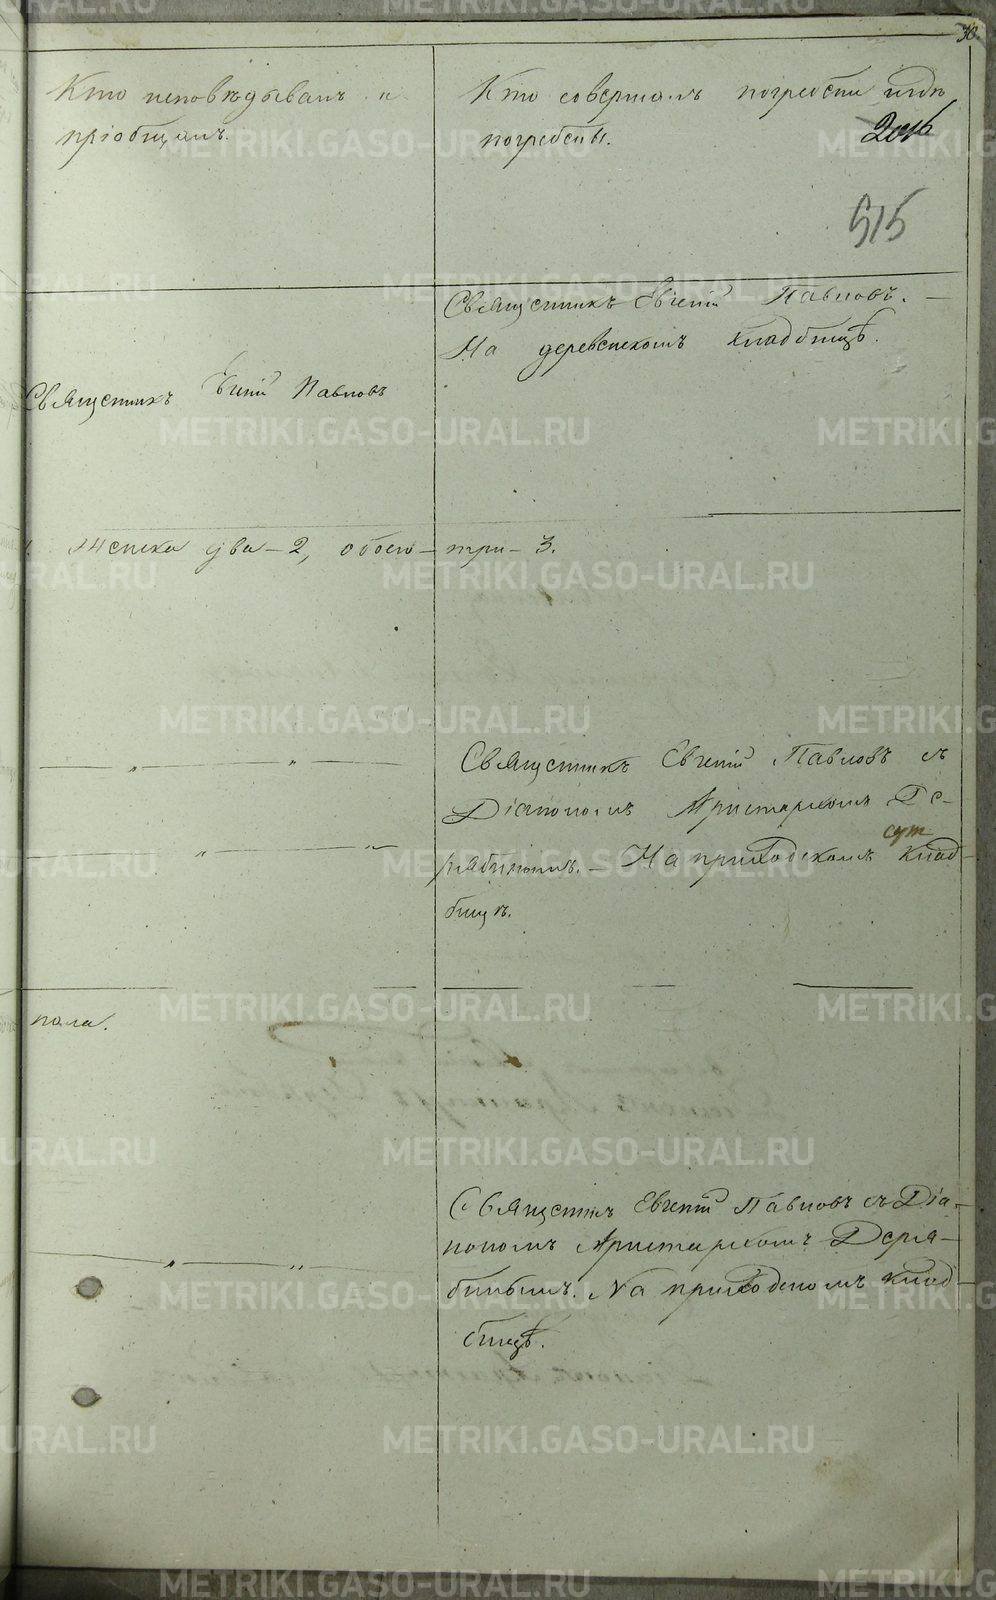 30
Кто исповѣдывалъ и
пріобщалъ.
Кто совершалъ погребеніе и гдѣ
погребены.
515
Священникъ Евгеній Павловъ.
На деревенскомъ кладбищѣ.
Священникъ Евгеній Павловъ
женска два - 2, обоего - три - 3.
Священникъ Евгеній Павловъ съ
Діакономъ Аристархомъ Де-
сут
рябинымъ. - На приходскомъ клад-
бищѣ.
пола.
Священникъ Евгеній Павловъ съ Діа-
кономъ Аристархомъ Деря-
бинымъ. На приходскомъ клад-
бищѣ.
METRIKI.GASO-URAL.RU